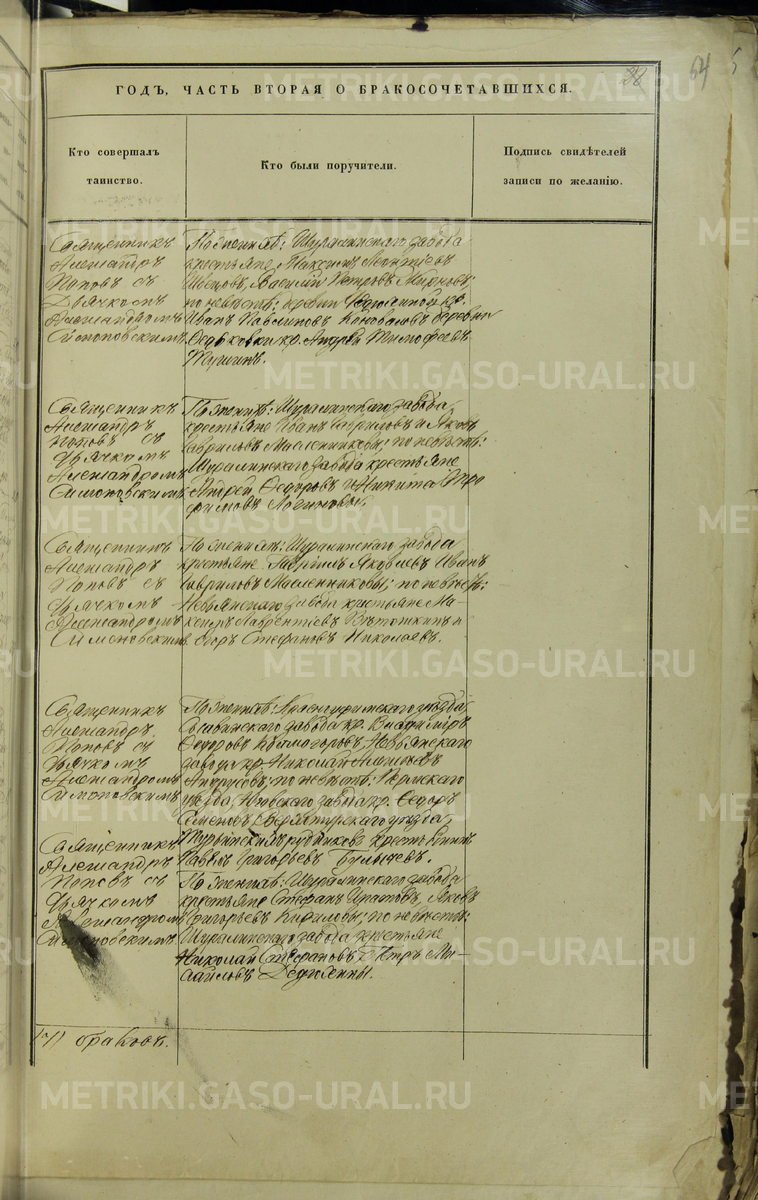 28
54
5
ГОДЪ, ЧАСТЬ ВТОРАЯ О БРАКОСОЧЕТАВШИХСЯ.
Кто совершалъ
таинство.
Кто были поручители.
Подпись свидѣтелей
записи по желанію.
Священникъ
Александръ
Поповъ съ
Дьячкомъ
Александромъ
Симоновскимъ
По женихѣ: Шуралинскаго завода
крестьяне Максимъ
Швецовъ, Василій Петровъ
по невѣстѣ:
Иванъ Павлиновъ Коноваловъ деревни
кр. Андрей Тимофеевъ
Священникъ
Александръ
Поповъ съ
Дьячкомъ
Александромъ
Симоновскимъ
По женихѣ: Шуралинскаго завода
крестьяне Иванъ Гавриловъ и Яковъ
Гавриловъ Масленниковы; по невѣстѣ:
Шуралинскаго завода крестьяне
Андрей Ѳедоровъ и Никита Тро
фимовъ Логиновы.
Священникъ
Александръ
Поповъ съ
Дьячкомъ
Александромъ
Симоновскимъ
По женихѣ: Шуралинскаго завода
крестьяне Гаврiилъ Яковлевъ Иванъ
Гавриловъ Масленниковы; по невѣстѣ:
Невьянскаго завода крестьяне Ма-
ксимъ Лаврентіевъ и
Егоръ Стефановъ Николаевъ.
Священникъ
Александръ
Поповъ съ
Дьячкомъ
Александромъ
Симоновскимъ
По женихѣ: уѣзда,
завода кр. Владиміръ
Ѳедоровъ Колмогоровъ, Невьянскаго
завода кр. Николай
по невѣстѣ: Пермскаго
уѣзда, Юговскаго завода кр. Ѳедоръ
Семеновъ Верхотурскаго уѣзда,
Турьинскихъ рудниковъ
Павелъ Григорьевъ Булычевъ.
Священникъ
Александръ
Поповъ съ
Дьячкомъ
Александромъ
Симоновскимъ
По женихѣ: Шуралинскаго завода
крестьяне Стефанъ Яковъ
Григорьевъ Кириловы; по невѣстѣ:
Шуралинскаго завода крестьяне
Николай Стефановъ и Петръ Ми-
хайловъ
браковъ.
METRIKI.GASO-URAL.RU